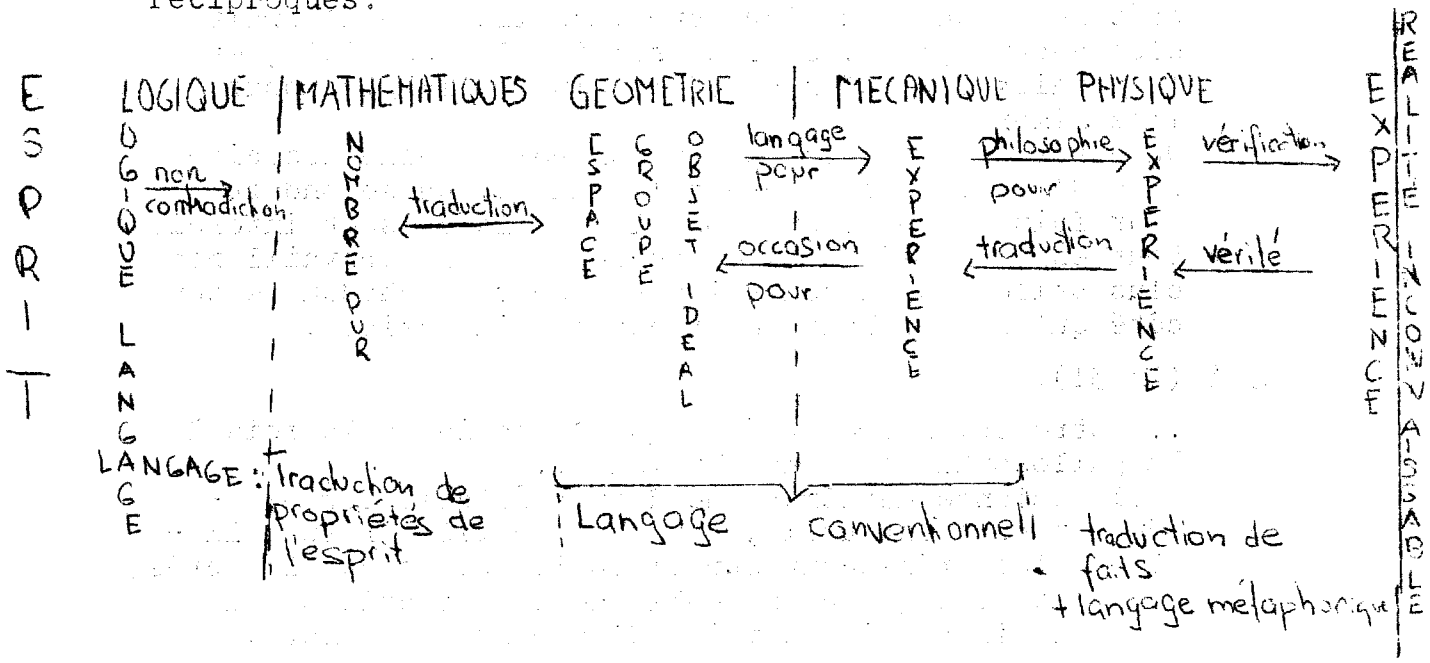 réciproques.
ESPRIT
LOGIQUE
MATHEMATIQUES
GEOMETRIE
MECANIQUE
PHYSIQUE
EXPERIENCE
REALITE INCONNAISSABLE
LOGIQUE LANGAGE
non
contradiction
NOMBRE PUR
traduction
ESPACE
GROUPE
OBJET IDEAL
langage
pour
occasion
pour
EXPERIENCE
philosophie
pour
traduction
EXPERIENCE
vérification
vérité
LANGAGE : traduction de
propriétés de
l'esprit
Langage conventionnel
traduction de
faits
+ langage métaphorique